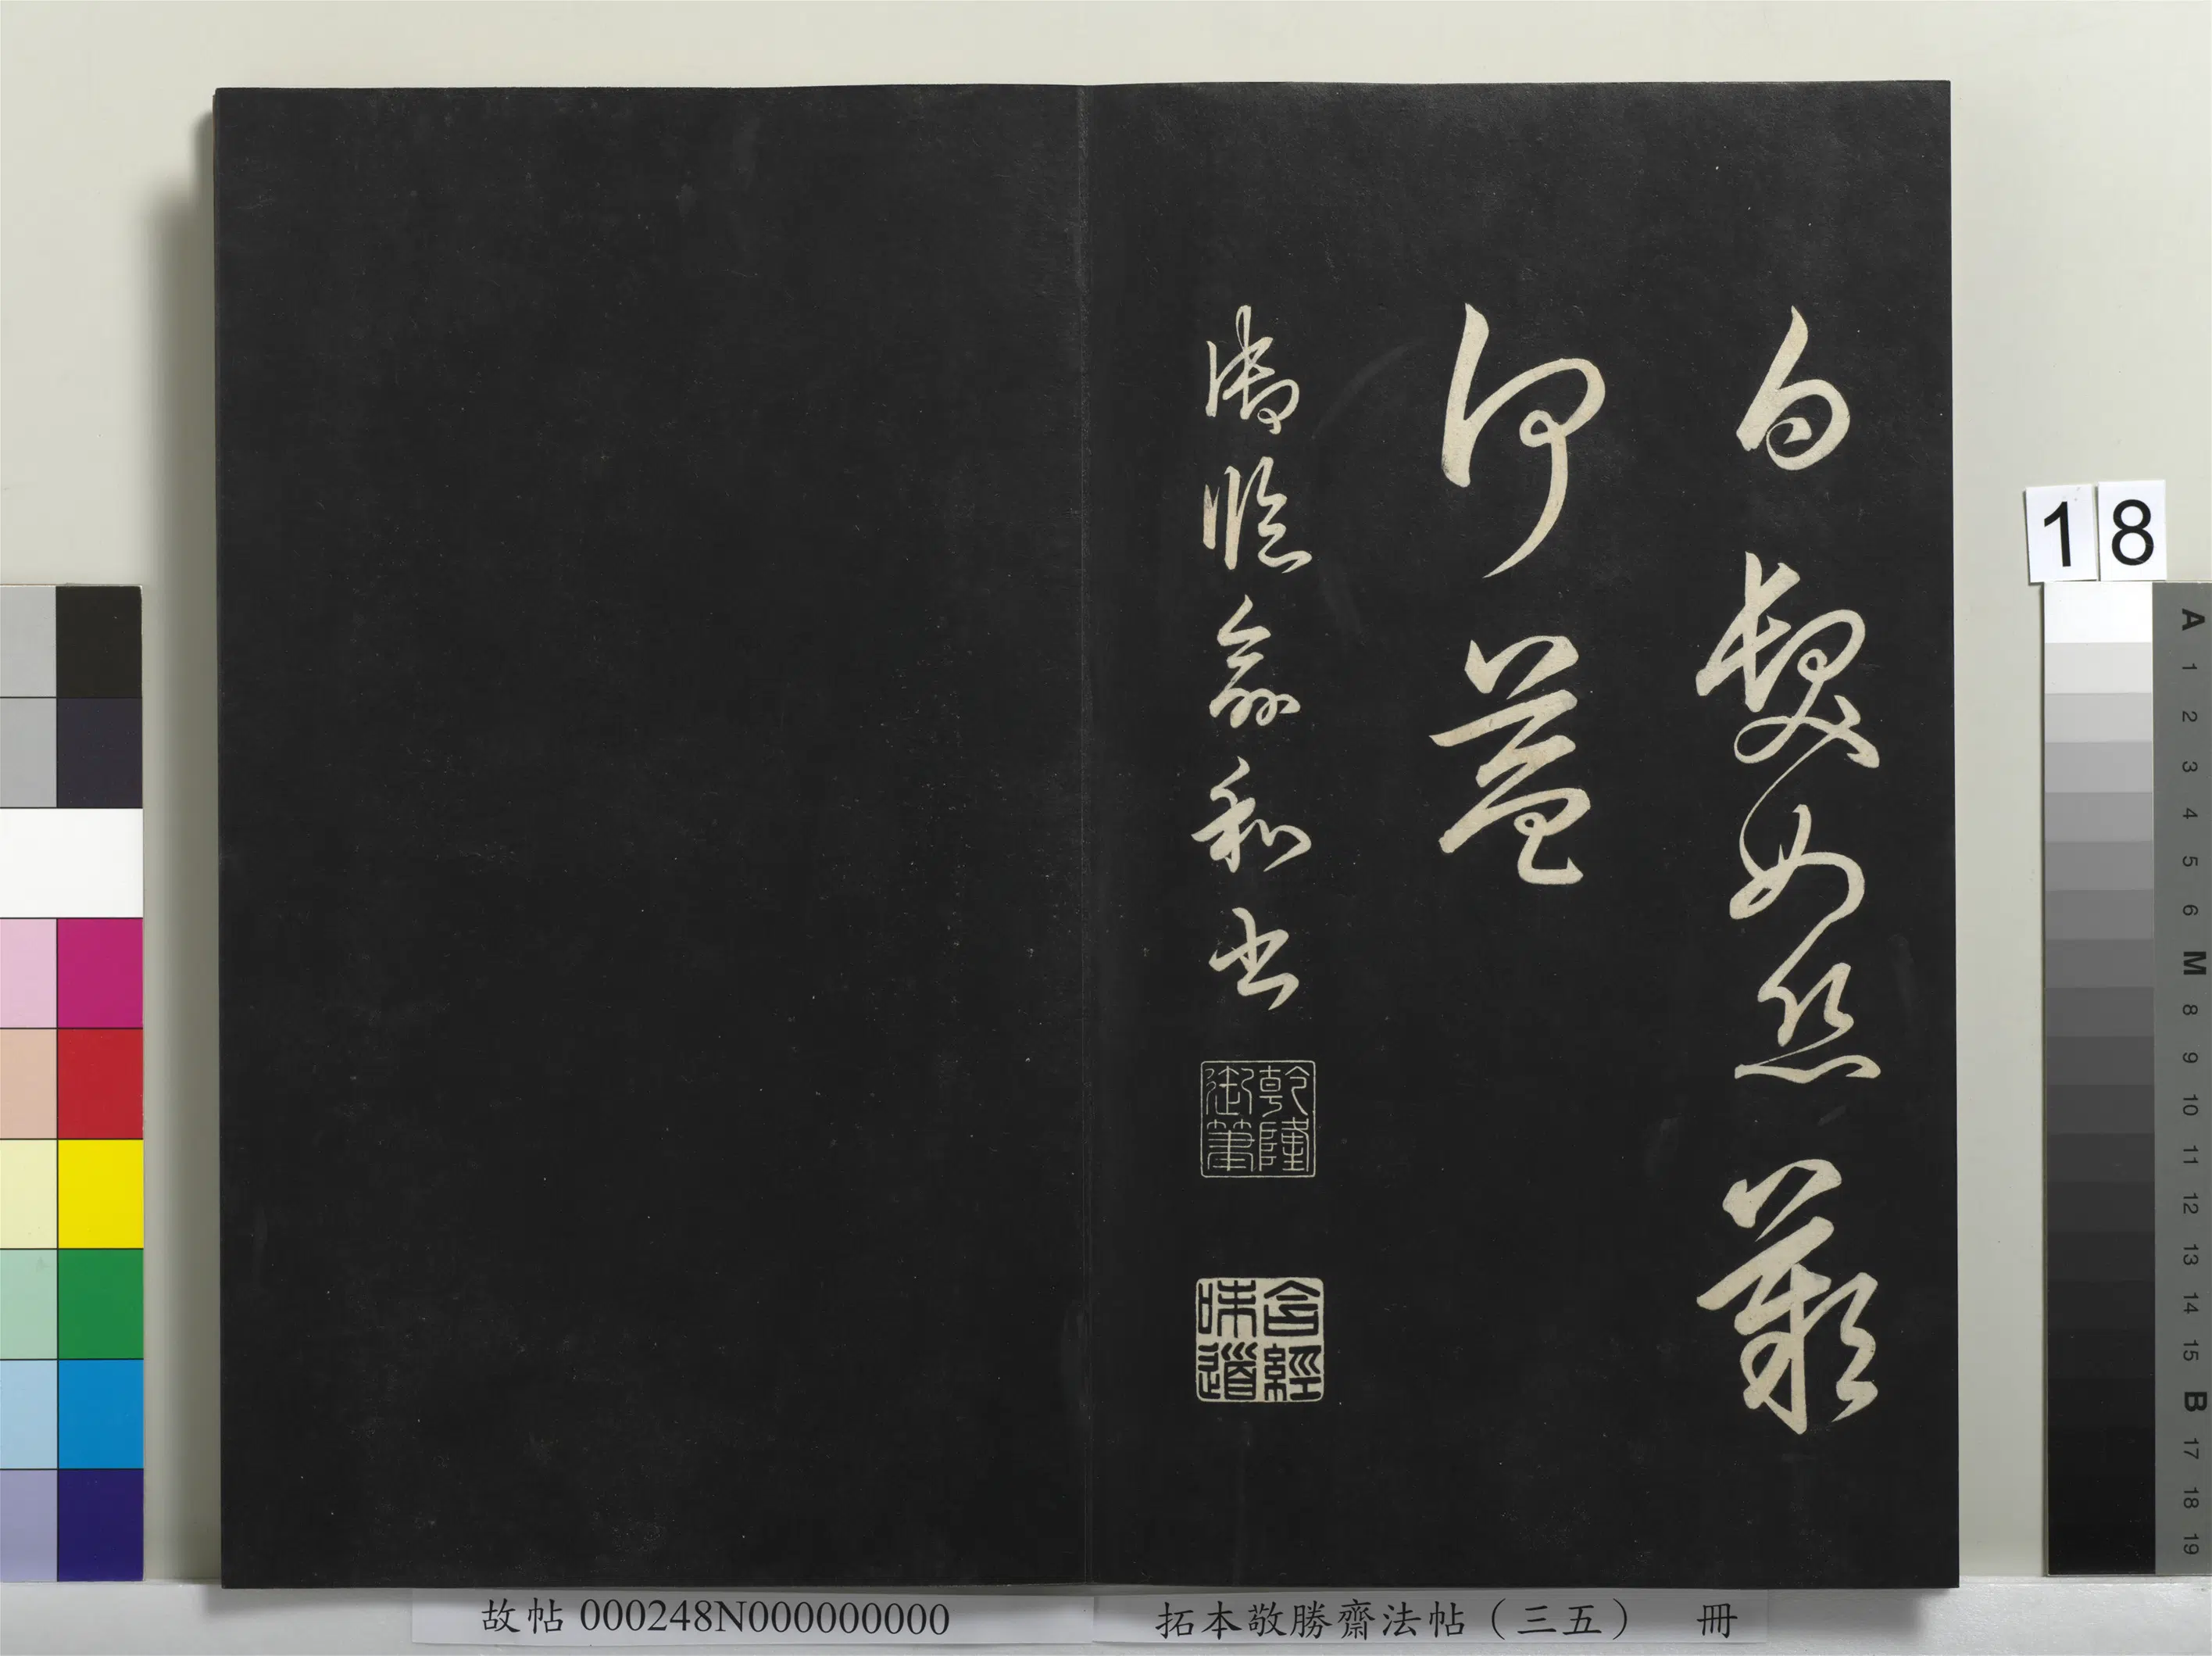 白髮如絲歎
何益
御臨俞和書
乾隆
御筆
含經
味道
18
A 1 2 3 4 5 6 M 8 9 10 11 12 13 14 15 B 17 18 19
故帖 000248N000000000
拓本敬勝齋法帖（三五） 冊